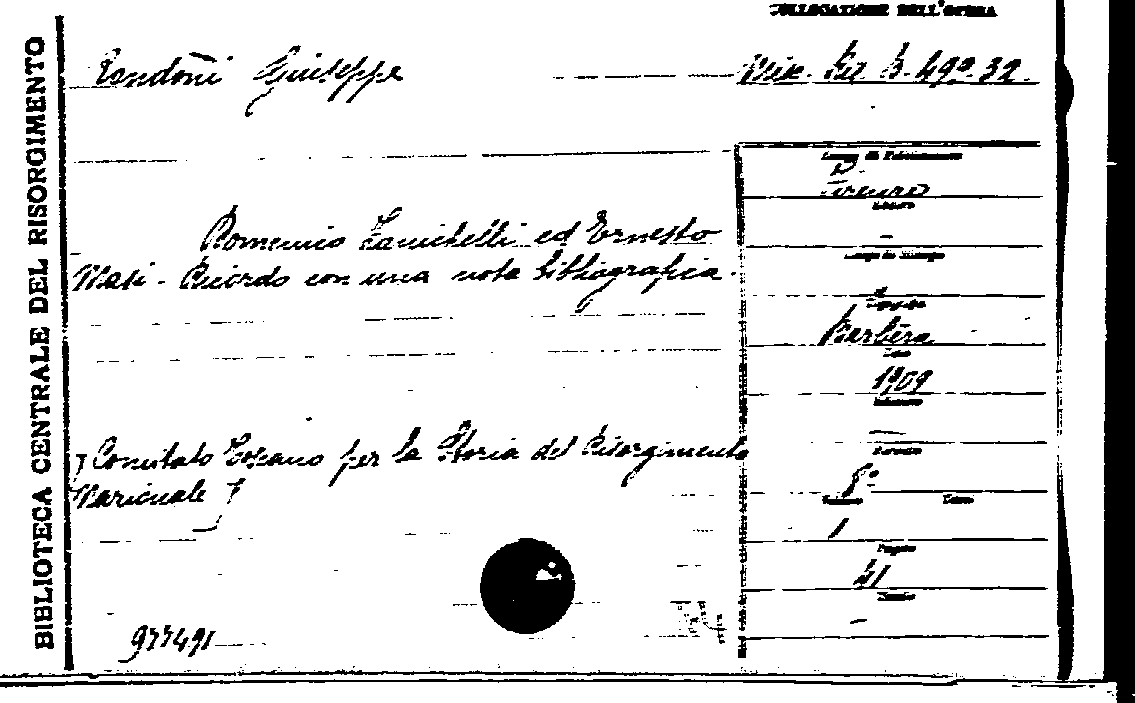 COLLOCAZIONE DELL'OPERA
BIBLIOTECA CENTRALE DEL RISORGIMENTO
Rondoni Giuseppe
Misc. Ris. B. 490.32.
Luogo di Pubblicazione
Firenze
Editore
-
Luogo di Stampa
Domenico Zanichelli ed Ernesto
Masi - Ricordo con una nota bibliografica.
Tipografia
Barbèra
Anno
1909
Edizione
—
Formato
8°
[Comitato Toscano per la Storia del Risorgimento
Nazionale]
Volume
1
Pagine
41
Tavole
-